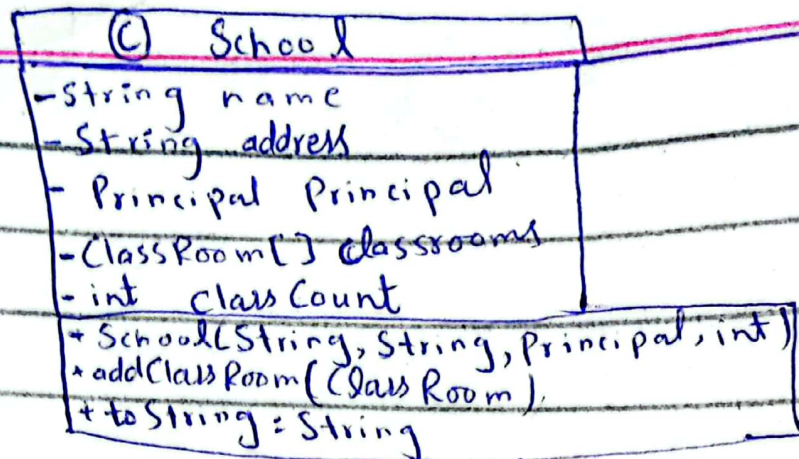 Ⓒ School
- String name
- String address
- Principal Principal
- ClassRoom[] classrooms
- int classCount
+ School(String, String, Principal, int)
+ addClassRoom(ClassRoom)
+ toString : String